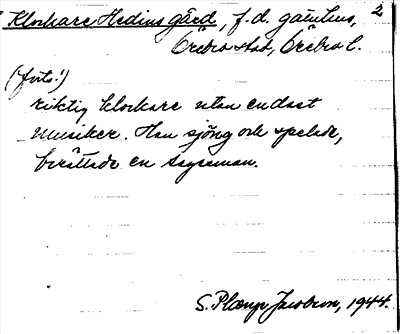 Klockare Hedins gård, f.d. gästhus, 2
Örebro stad, Örebro l.
(forts!)
riktig klockare utan endast
musiker. Han sjöng och spelade,
berättade en sagesman.
S. Plænge Jacobson, 1944.